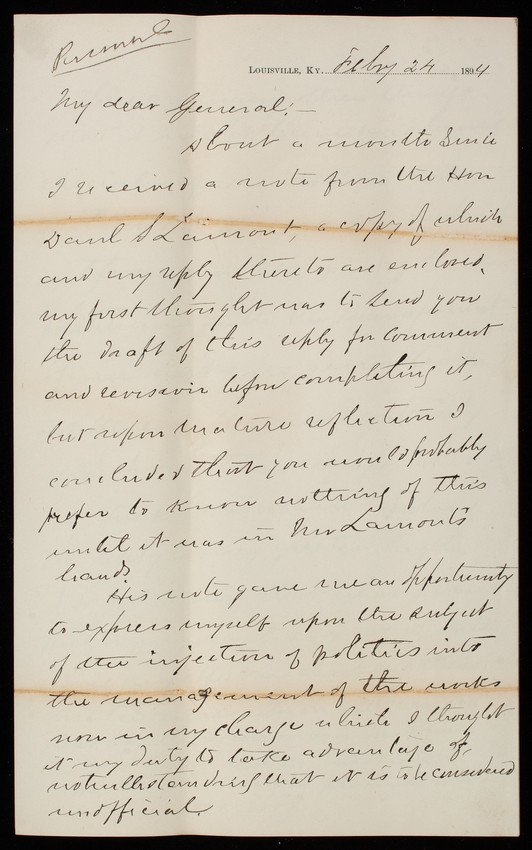 Personal
Louisville, Ky. Febry 24 1894
My dear General:—
About a month since
I received a note from the Hon
Danl S Lamont, a copy of which
and my reply thereto are enclosed.
My first thought was to send you
the draft of this reply for comment
and revision before completing it,
but upon mature reflection I
concluded that you would probably
prefer to know nothing of this
until it was in Mr Lamont's
hands.
His note gave me an opportunity
to express myself upon the subject
of the injection of politics into
the management of the works
now in my charge which I thought
it my duty to take advantage of,
notwithstanding that it is to be considered
unofficial.